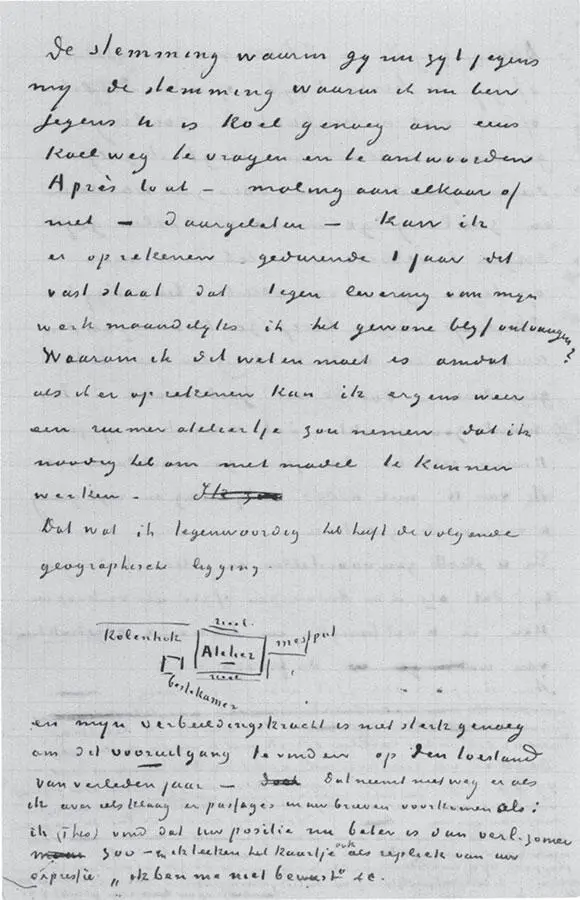 De stemming waarin gy nu zyt jegens
my de stemming waarin ik nu ben
jegens U is koel genoeg om eens
koelweg te vragen en te antwoorden
Après tout – maling aan elkaar of
niet – daargelaten – kan ik
er op rekenen gedurende 1 jaar dit
vast staat dat tegen levering van myn
werk maandelyks ik het gewone blyf ontvangen?
Waarom ik dit weten moet is omdat
als ik er op rekenen kan ik ergens weer
een ruimer ateliertje zou nemen dat ik
noodig heb om met model te kunnen
werken – Ik zou
Dat wat ik tegenwoordig heb heeft de volgende
geographische ligging.
riool.
Kolenhok
Atelier
mestput
riool
bestekamer
en myn verbeeldingskracht is niet sterk genoeg
om dit vooruitgang te vinden op den toestand
van verleden jaar – dat neemt niet weg er als
ik over iets klaag er passages in uw brieven voorkomen als:
ik (Theo) vind dat uw positie nu beter is dan verl. zomer
zoo – ik teeken het kaartje ook als repliek van uw
expressie „ik ben me niet bewust" &c.